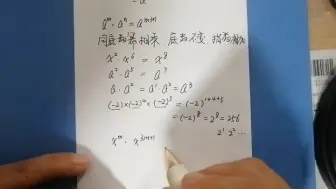 a
aᵐ · aⁿ = aᵐ⁺ⁿ
同底数幂相乘 底数不变 指数相加
x² · x⁶ = x⁸
a² · a⁵ = a⁷
a · a² = a¹ · a² = a³
(-2)×(-2)⁴×(-2)³ = (-2)¹⁺⁴⁺³
= (-2)⁸ = 2⁸ = 256
2¹ 2² ...
xᵐ · x³ᵐ⁺¹